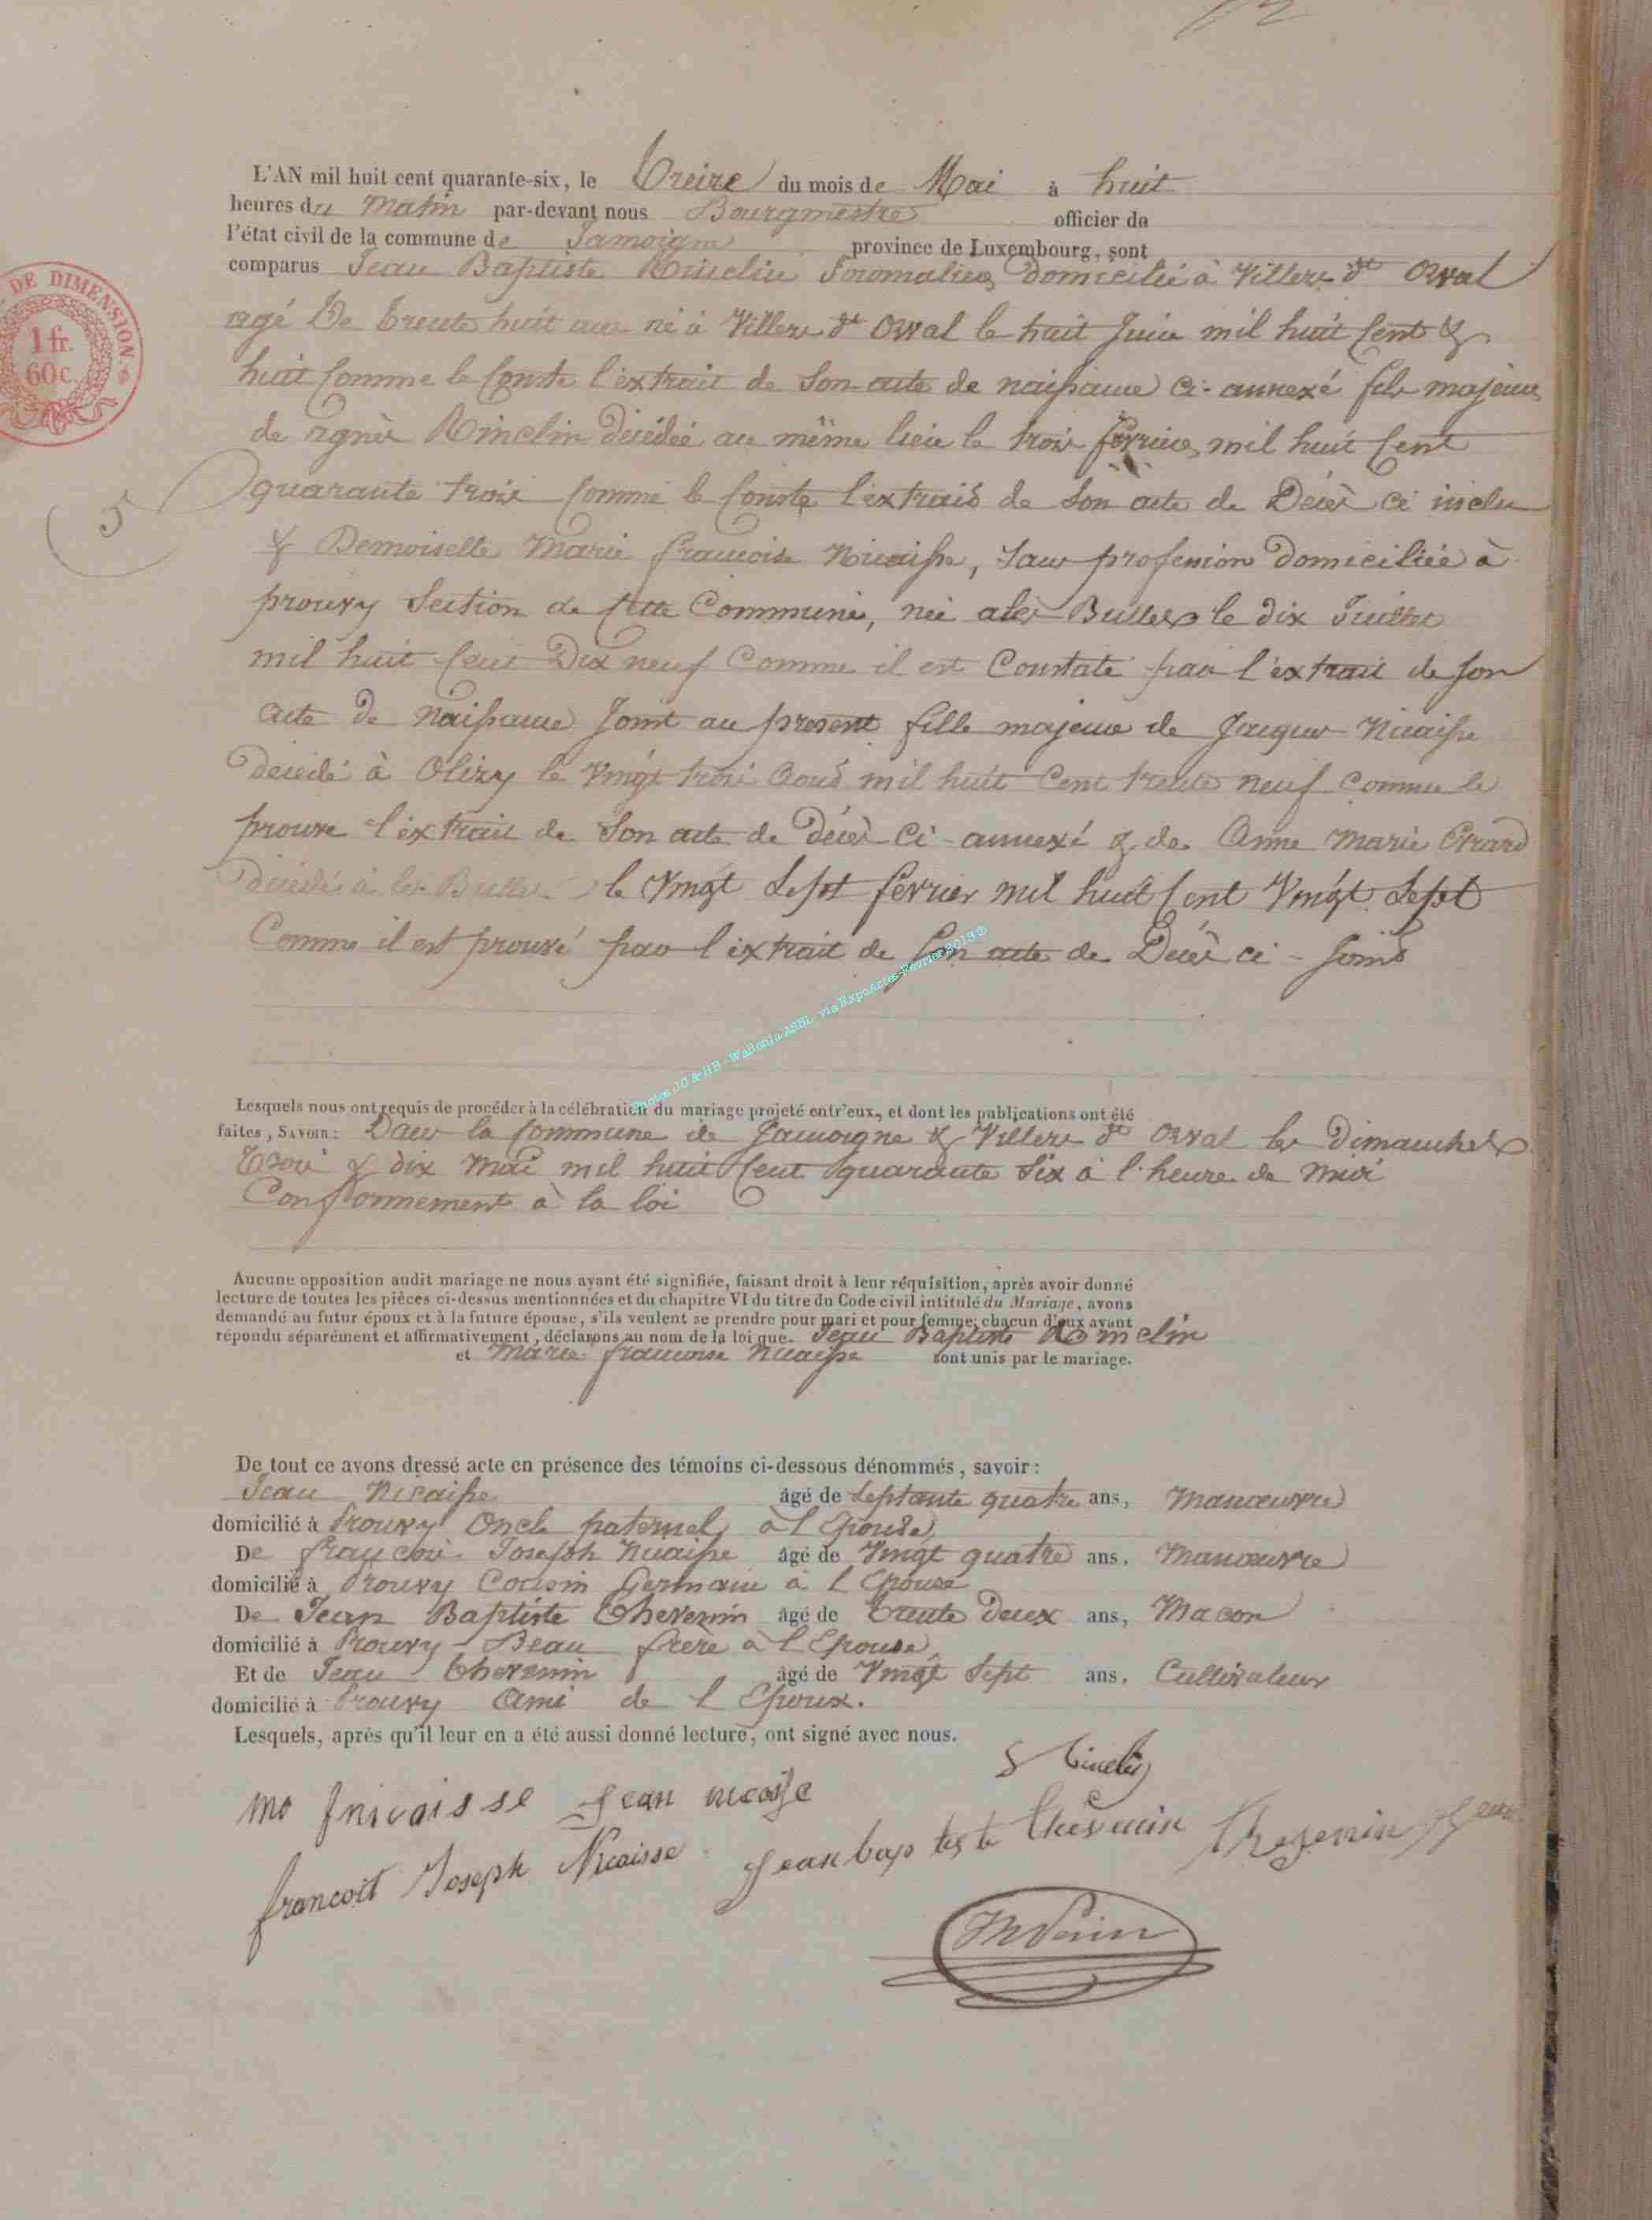 L'AN mil huit cent quarante-six, le treize du mois de Mai à huit
heures du matin par-devant nous Bourgmestre officier de
l'état civil de la commune de Jamoigne province de Luxembourg, sont
comparus Jean Baptiste Rinclin Journalier, Domicilié à Villers dt Orval
agé De trente huit ans né à Villers dt Orval le huit Juin mil huit Cent &
huit Comme le Conste l'extrait de Son acte de naissance ci-annexé fils majeur
de agnès Rinclin décédée au même lieu le trois fevrier mil huit Cent
quarante trois Comme le Conste l'extrait de Son acte de Décès ci inclu
& Demoiselle Marie francoise Nicaisse, Sans profession Domiciliée à
prouvy Section de Cette Commune, née à les Bulles le dix Juillet
mil huit Cent Dix neuf Comme il est Constaté par l'extrait de Son
acte de Naissance Joint au présent fille majeure de Jacques Nicaisse
décédé à Olizy le Vingt trois Aout mil huit Cent trente neuf Comme le
prouve l'extrait de Son acte de décès Ci-annexé & de Anne Marie Evrard
décédé à les Bulles le Vingt Sept fevrier mil huit Cent Vingt Sept
Comme il est prouvé par l'extrait de Son acte de Décès ci-joint
Photos JO & HB - Wallonia ASBL via ExpoActes Février 2013 ©
Lesquels nous ont requis de procéder à la célébration du mariage projeté entr'eux, et dont les publications ont été
faites, SAVOIR: Dans la Commune de Jamoigne & Villers dt Orval les Dimanches
trois & dix Mai mil huit Cent quarante Six à l'heure de midi
Conformement à la loi
Aucune opposition audit mariage ne nous ayant été signifiée, faisant droit à leur réquisition, après avoir donné
lecture de toutes les pièces ci-dessus mentionnées et du chapitre VI du titre du Code civil intitulé du Mariage, avons
demandé au futur époux et à la future épouse, s'ils veulent se prendre pour mari et pour femme; chacun d'eux ayant
répondu séparément et affirmativement, déclarons au nom de la loi que. Jean Baptiste Rinclin
et Marie francoise Nicaisse sont unis par le mariage.
De tout ce avons dressé acte en présence des témoins ci-dessous dénommés, savoir:
Jean Nicaisse âgé de Septante quatre ans, Manœuvre
domicilié à Prouvy Oncle paternel à l Epouse
De françois Joseph Nicaisse âgé de Vingt quatre ans, Manœuvre
domicilié à Prouvy Cousin Germain à l Epouse
De Jean Baptiste Thevenin âgé de trente Deux ans, Macon
domicilié à Prouvy Beau frère à l Epouse
Et de Jean Thevenin âgé de Vingt Sept ans, Cultivateur
domicilié à Prouvy Ami de l Epoux.
Lesquels, après qu'il leur en a été aussi donné lecture, ont signé avec nous.
DE DIMENSION.
1 fr.
60 c.
5
jean nicaisse
francoit Joseph Nicaisse jean baptiste Thevenin Thevenin jean